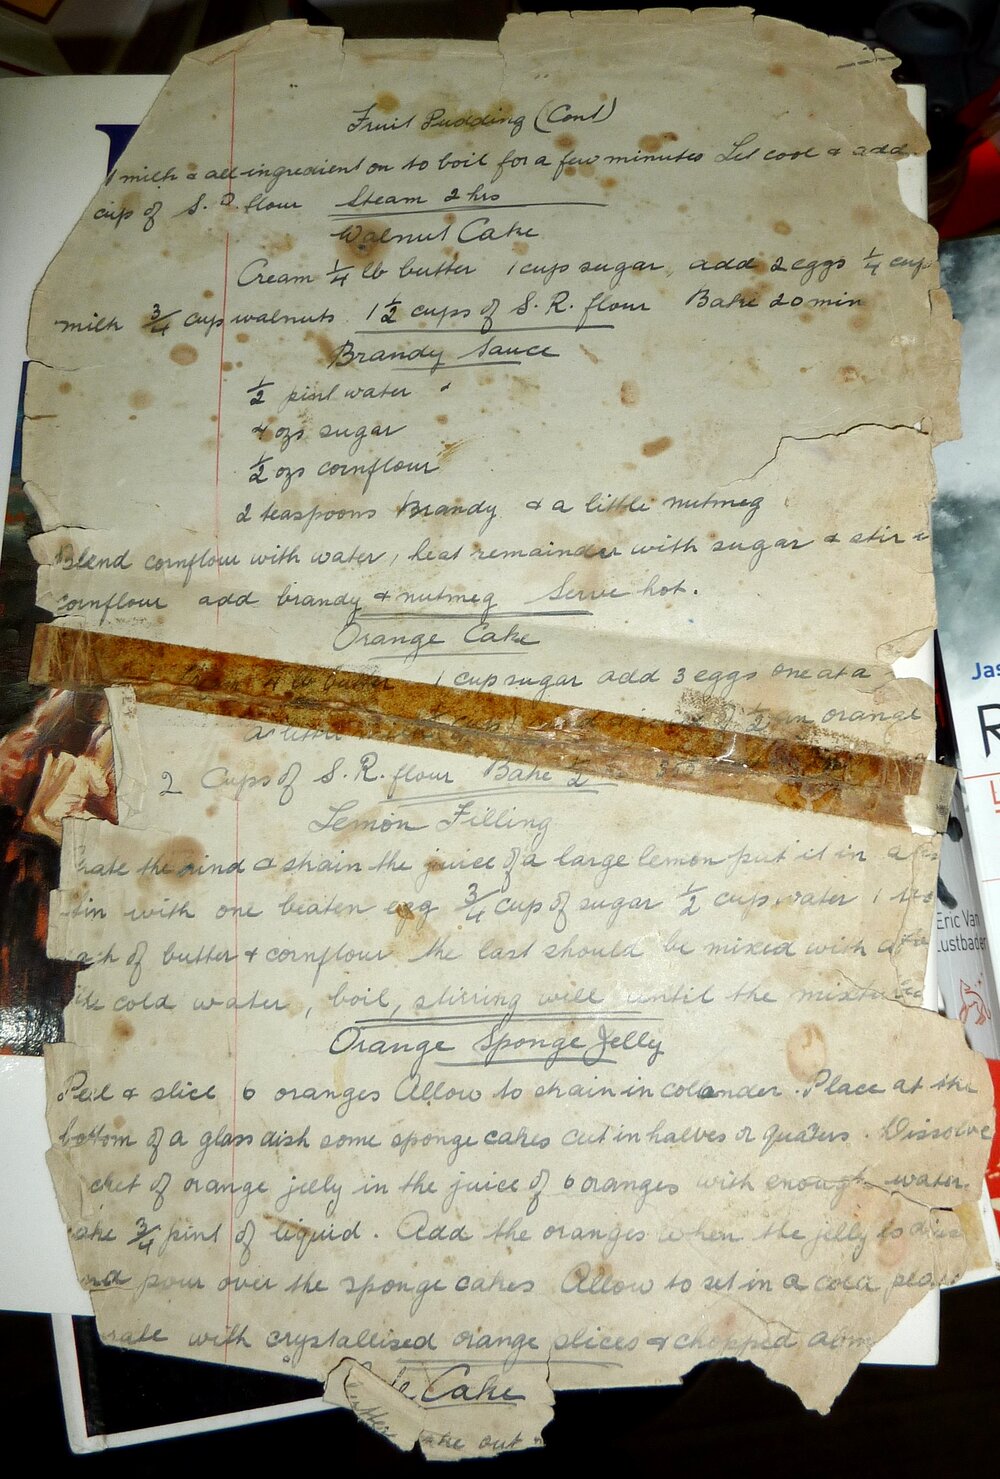 Fruit Pudding (Cont)
milk & all ingredient on to boil for a few minutes Let cool & add
cup of S. R. flour Steam 2 hrs
Walnut Cake
Cream 1/4 lb butter 1 cup sugar, add 2 eggs 1/4 cup
milk 3/4 cup walnuts 1 1/2 cups of S. R. flour Bake 20 min
Brandy Sauce
1/2 pint water
4 ozs sugar
1/2 ozs cornflour
2 teaspoons Brandy & a little nutmeg
Blend cornflour with water, heat remainder with sugar & stir
cornflour add brandy & nutmeg Serve hot.
Orange Cake
1/4 lb butter 1 cup sugar add 3 eggs one at a
1/2 an orange
a little
2 Cups of S. R. flour Bake 1/2
Lemon Filling
rate the rind & strain the juice of a large lemon put it in a
tin with one beaten egg 3/4 cup of sugar 1/2 cup water 1
of butter & cornflour the last should be mixed with a
cold water, boil, stirring will until the mixture
Orange Sponge Jelly
Peel & slice 6 oranges Allow to strain in colander. Place at the
bottom of a glass dish some sponge cakes cut in halves or quaters. Dissolve
cket of orange jelly in the juice of 6 oranges with enough water
ake 3/4 pint of liquid. Add the oranges when the jelly is
and pour over the sponge cakes Allow to set in a cold
rate with crystallised orange slices & chopped
Cake
out
Jas
R
Eric Van
Lustbader